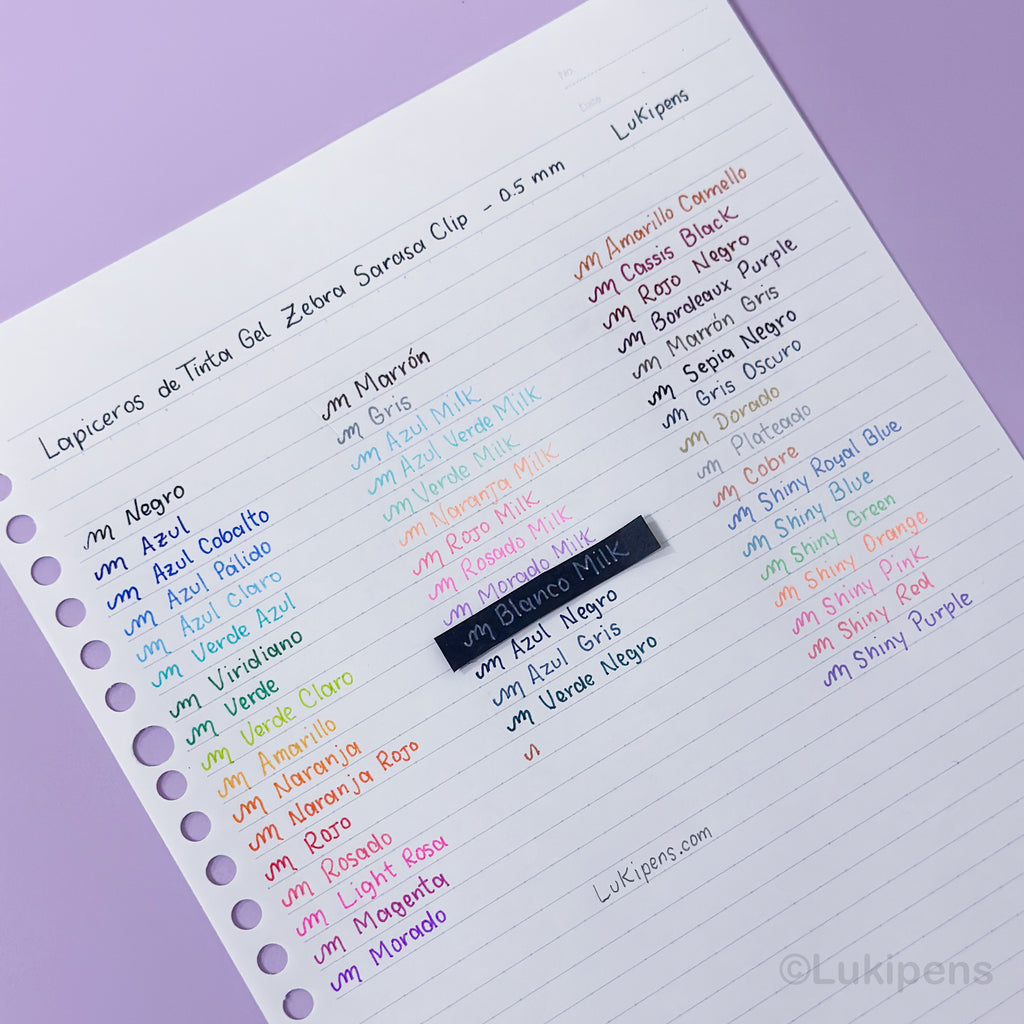 No.
Date
Lukipens
Lapiceros de Tinta Gel Zebra Sarasa Clip - 0.5 mm
m Negro
m Azul
m Azul Cobalto
m Azul Pálido
m Azul Claro
m Verde Azul
m Viridiano
m Verde
m Verde Claro
m Amarillo
m Naranja
m Naranja Rojo
m Rojo
m Rosado
m Light Rosa
m Magenta
m Morado
m Marrón
m Gris
m Azul Milk
m Azul Verde Milk
m Verde Milk
m Naranja Milk
m Rojo Milk
m Rosado Milk
m Morado Milk
m Blanco Milk
m Azul Negro
m Azul Gris
m Verde Negro
m Amarillo Camello
m Cassis Black
m Rojo Negro
m Bordeaux Purple
m Marrón Gris
m Sepia Negro
m Gris Oscuro
m Dorado
m Plateado
m Cobre
m Shiny Royal Blue
m Shiny Blue
m Shiny Green
m Shiny Orange
m Shiny Pink
m Shiny Red
m Shiny Purple
Lukipens.com
©Lukipens